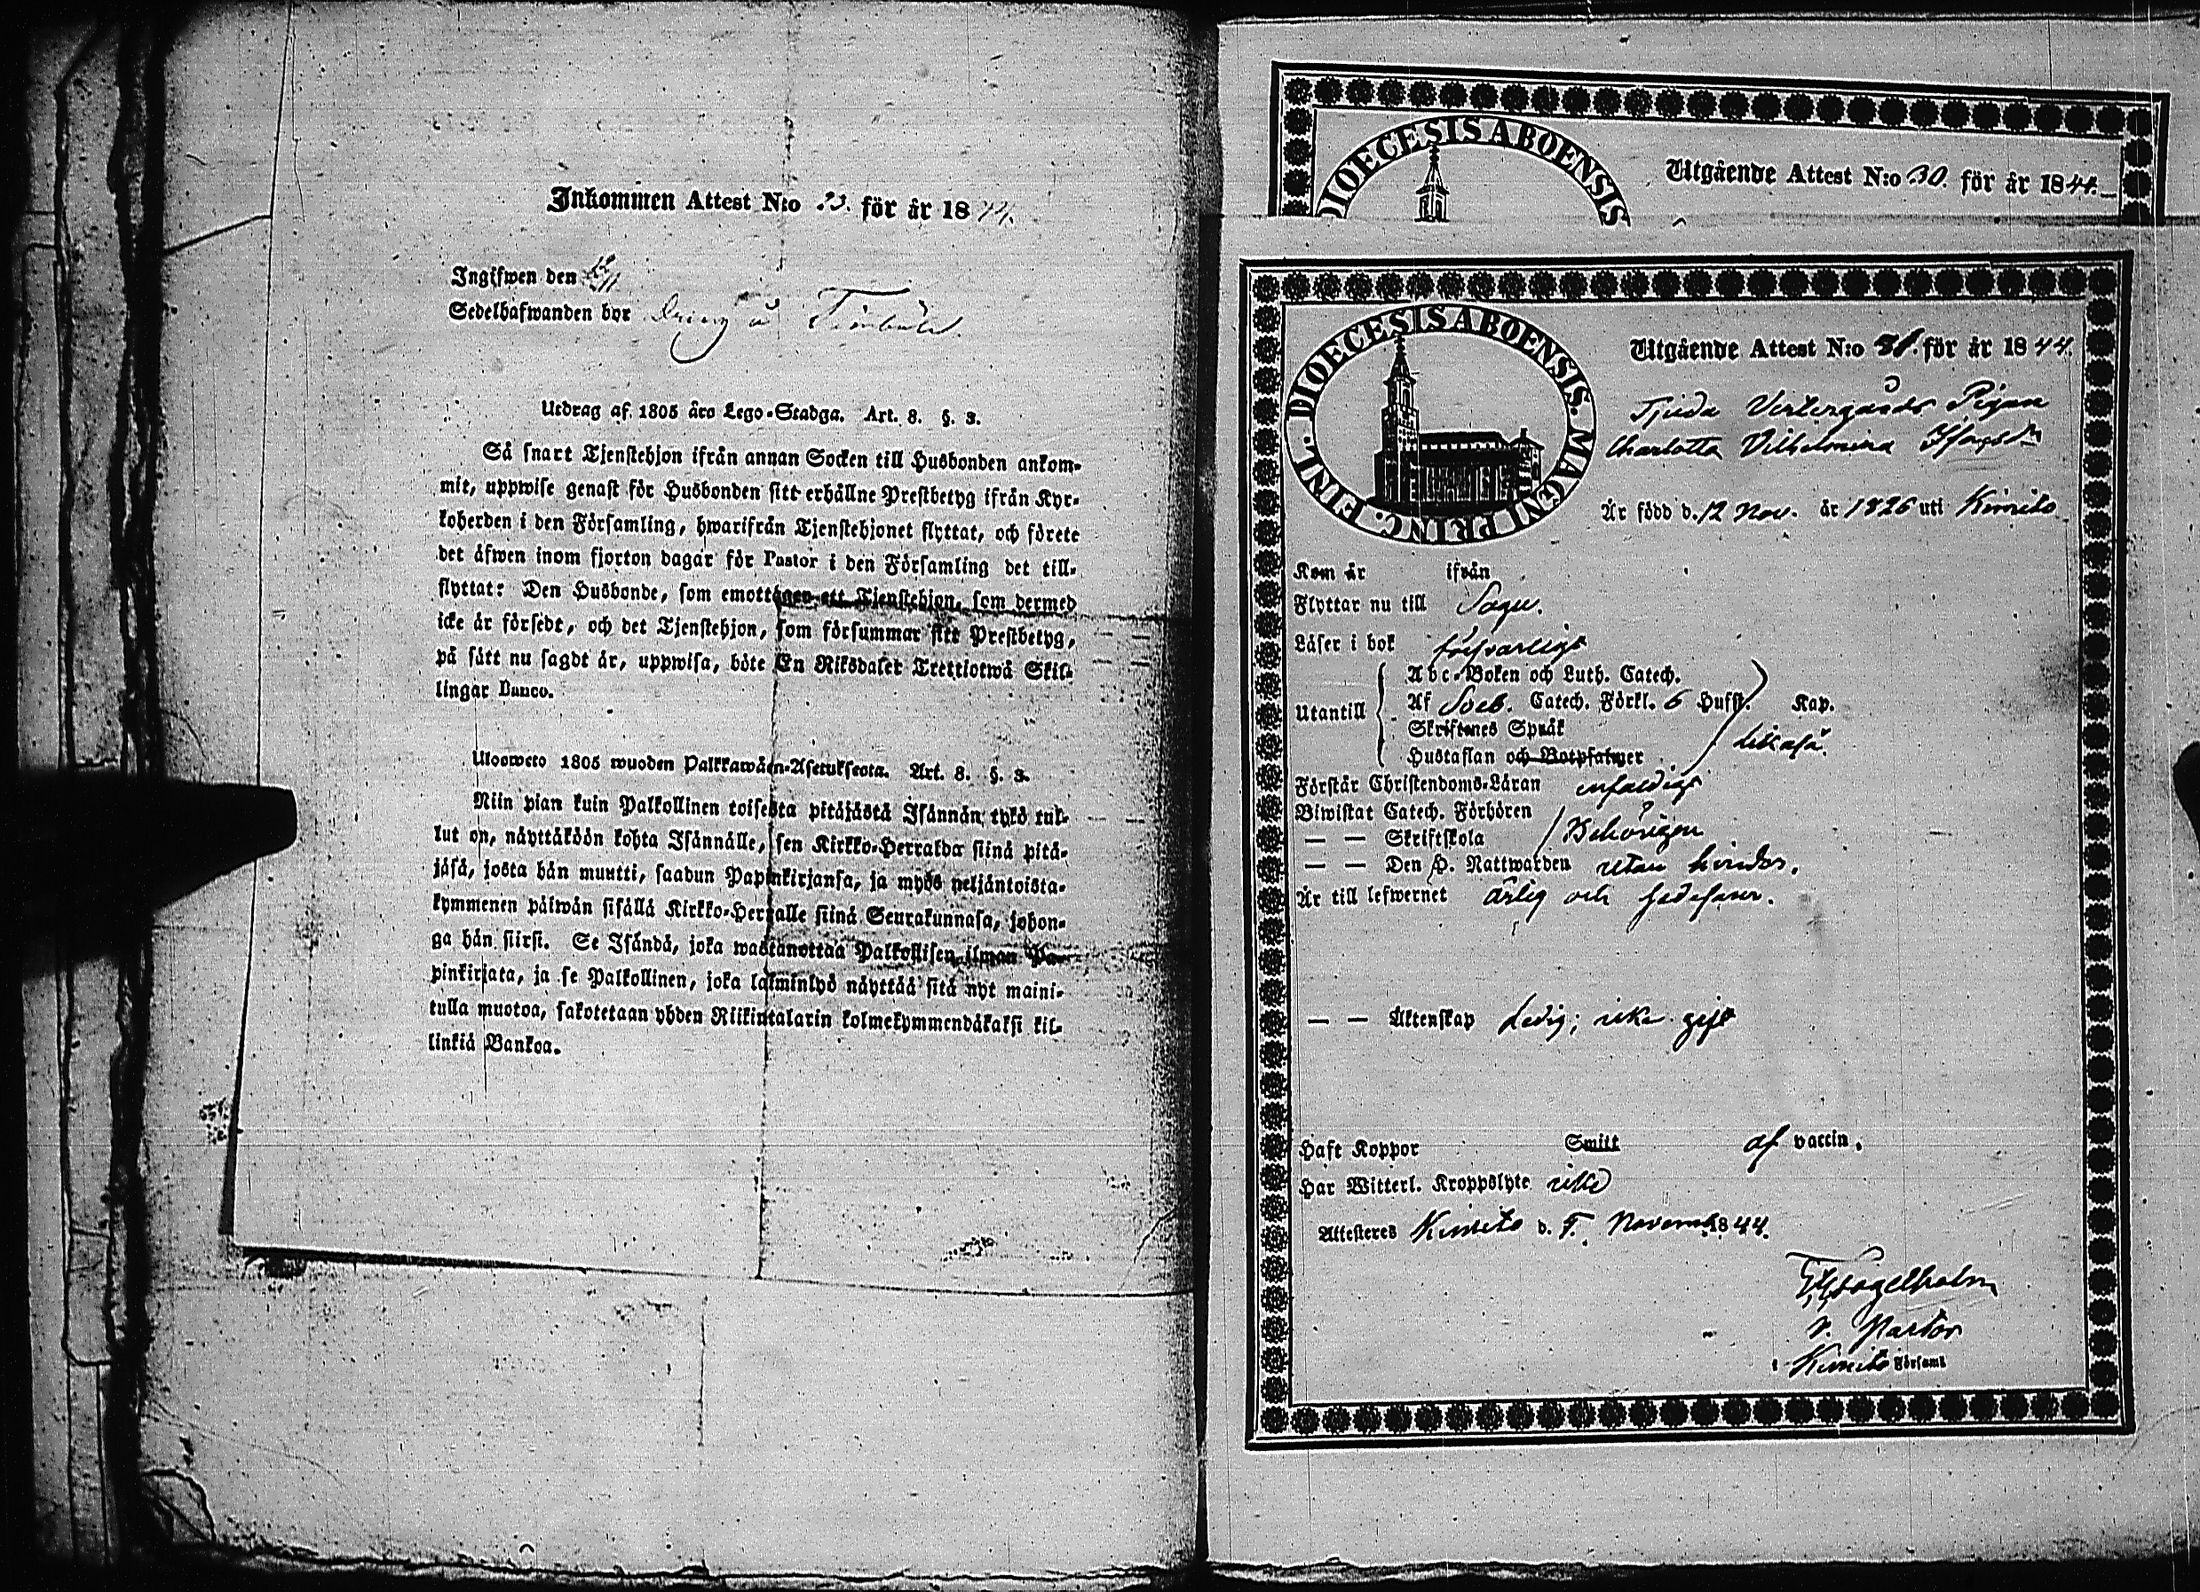 Inkommen Attest N:o för år 18
Ingifwen den
Sedelhafwanden bor Dräng å
Utdrag af 1805 års Lego-Stadga. Art. 8. §. 3.
Så snart Tjenstehjon ifrån annan Socken till Husbonden ankom-
mit, uppwise genast för Husbonden sitt erhållne Prestbetyg ifrån Kyr-
koherden i den Församling, hwarifrån Tjenstehjonet flyttat, och förete
det äfwen inom fjorton dagar för Pastor i den Församling det till-
flyttat: Den Husbonde, som emottager ett Tjenstehjon, som dermed
icke är försedt, och det Tjenstehjon, som försummar sitt Prestbetyg,
på sätt nu sagdt är, uppwisa, böte En Riksdaler Trettiotwå Skil-
lingar Banco.
Ulosweto 1805 wuoden Palkkawäen-Asetuksesta. Art. 8. §. 3.
Niin pian kuin Palkollinen toisesta pitäjästä Isännän tykö tul-
lut on, näyttäköön kohta Isännälle, sen Kirkko-Herralda siinä pitä-
jäsä, josta hän muutti, saadun Papinkirjansa, ja myös neljäntoista-
kymmenen päiwän sisällä Kirkko-Herralle siinä Seurakunnasa, johon-
ga hän siirsi. Se Isändä, joka wastanottaa Palkollisen ilman Pa-
pinkirjata, ja se Palkollinen, joka laiminlyö näyttää sitä nyt maini-
tulla muotoa, sakotetaan yhden Riikintalarin kolmekymmendäkaksi kil-
linkiä Bankoa.
DIOECESIS ABOENSIS
Utgående Attest N:o 30. för år 1844.
DIOECESIS ABOENSIS. MAGNI PRINC. FINL.
Utgående Attest N:o 31. för år 1844.
Tjuda Vestergårds Pigan
Charlotta Vilhelmina
Är född d. 12 Nov. år 1826 uti Kimito
Kom år ifrån
Flyttar nu till Sagu.
Läser i bok försvarligt
Utantill
Abc-Boken och Luth. Catech.
Af Sveb. Catech. Förkl. 6 Hufst. Kap.
Skriftenes Språk
likaså.
Hustaflan och Botpsalmer
Förstår Christendoms-Läran enfaldigt
Biwistat Catech. Förhören
— — Skriftskola Behörigen
— — Den H. Nattwarden utan hinder.
Är till lefwernet ärlig och
— — Äktenskap Ledig; icke gift
Haft Koppor Smitt af vaccin.
Har Witterl. Kroppslyte icke
Attesteres Kimito d. 7. Novemb. 1844.
v. Pastor
i Kimito Församl